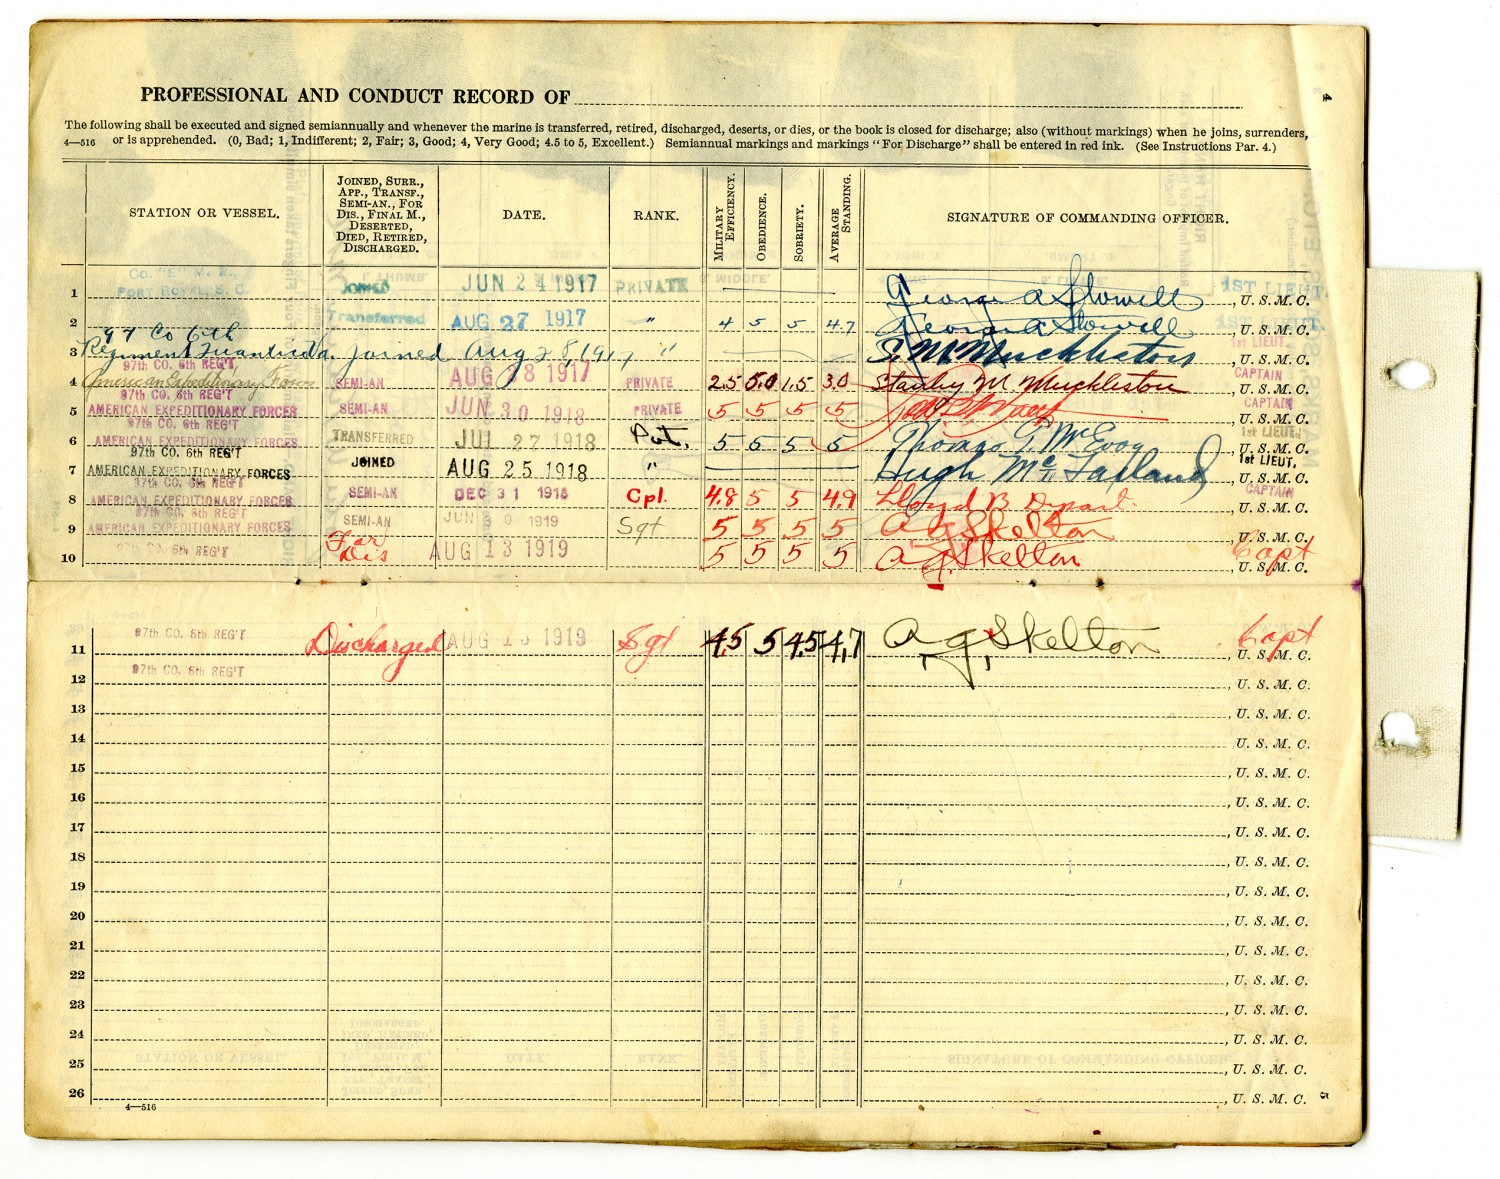 PROFESSIONAL AND CONDUCT RECORD OF
4
The following shall be executed and signed semiannually and whenever the marine is transferred, retired, discharged, deserts, or dies, or the book is closed for discharge; also (without markings) when he joins, surrenders,
4—516 or is apprehended. (0, Bad; 1, Indifferent; 2, Fair; 3, Good; 4, Very Good; 4.5 to 5, Excellent.) Semiannual markings and markings "For Discharge" shall be entered in red ink. (See Instructions Par. 4.)
STATION OR VESSEL.
JOINED, SURR., APP., TRANSF., SEMI-AN., FOR DIS., FINAL M., DESERTED, DIED, RETIRED, DISCHARGED.
DATE.
RANK.
MILITARY EFFICIENCY.
OBEDIENCE.
SOBRIETY.
AVERAGE STANDING.
SIGNATURE OF COMMANDING OFFICER.
Co. "E" M. B.,
1 PORT ROYAL, S. C. JOINED JUN 24 1917 PRIVATE George A Stowell 1ST LIEUT., U. S. M. C.
2 Transferred AUG 27 1917 " 4 5 5 4.7 George A Stowell 1ST LIEUT., U. S. M. C.
97 Co 6th
3 Regiment Quantico Va. Joined Aug 28, 1917 " S. M. Muckleston 1st LIEUT., U. S. M. C.
97th CO. 6th REG'T
4 American Expeditionary Forces SEMI-AN AUG 38 1917 PRIVATE 2.5 5.0 1.5 3.0 Stanley M Muckleston CAPTAIN, U. S. M. C.
97th CO. 6th REG'T
5 AMERICAN EXPEDITIONARY FORCES SEMI-AN JUN 30 1918 PRIVATE 5 5 5 5 CAPTAIN, U. S. M. C.
97th CO. 6th REG'T
6 AMERICAN EXPEDITIONARY FORCES TRANSFERRED JUL 27 1918 Pvt. 5 5 5 5 Thomas T. McEvoy 1st LIEUT., U. S. M. C.
97th CO. 6th REG'T
7 AMERICAN EXPEDITIONARY FORCES JOINED AUG 25 1918 " Hugh McFarland 1st LIEUT., U. S. M. C.
97th CO. 6th REG'T
8 AMERICAN EXPEDITIONARY FORCES SEMI-AN DEC 31 1918 Cpl. 4.8 5 5 4.9 Lloyd B CAPTAIN, U. S. M. C.
97th CO. 6th REG'T
9 AMERICAN EXPEDITIONARY FORCES SEMI-AN JUN 30 1919 Sgt 5 5 5 5 A. G. Skelton, U. S. M. C.
10 97th CO. 6th REG'T For Dis AUG 13 1919 5 5 5 5 A. G. Skelton Capt, U. S. M. C.
11 97th CO. 6th REG'T Discharged AUG 13 1919 Sgt 4.5 5 4.5 4.7 A. G. Skelton Capt U. S. M. C.
12 97th CO. 6th REG'T , U. S. M. C.
13 , U. S. M. C.
14 U. S. M. C.
15 , U. S. M. C.
16 , U. S. M. C.
17 , U. S. M. C.
18 , U. S. M. C.
19 , U. S. M. C.
20 , U. S. M. C.
21 , U. S. M. C.
22 , U. S. M. C.
23 , U. S. M. C.
24 , U. S. M. C.
25 , U. S. M. C.
26 , U. S. M. C.
4—516
5